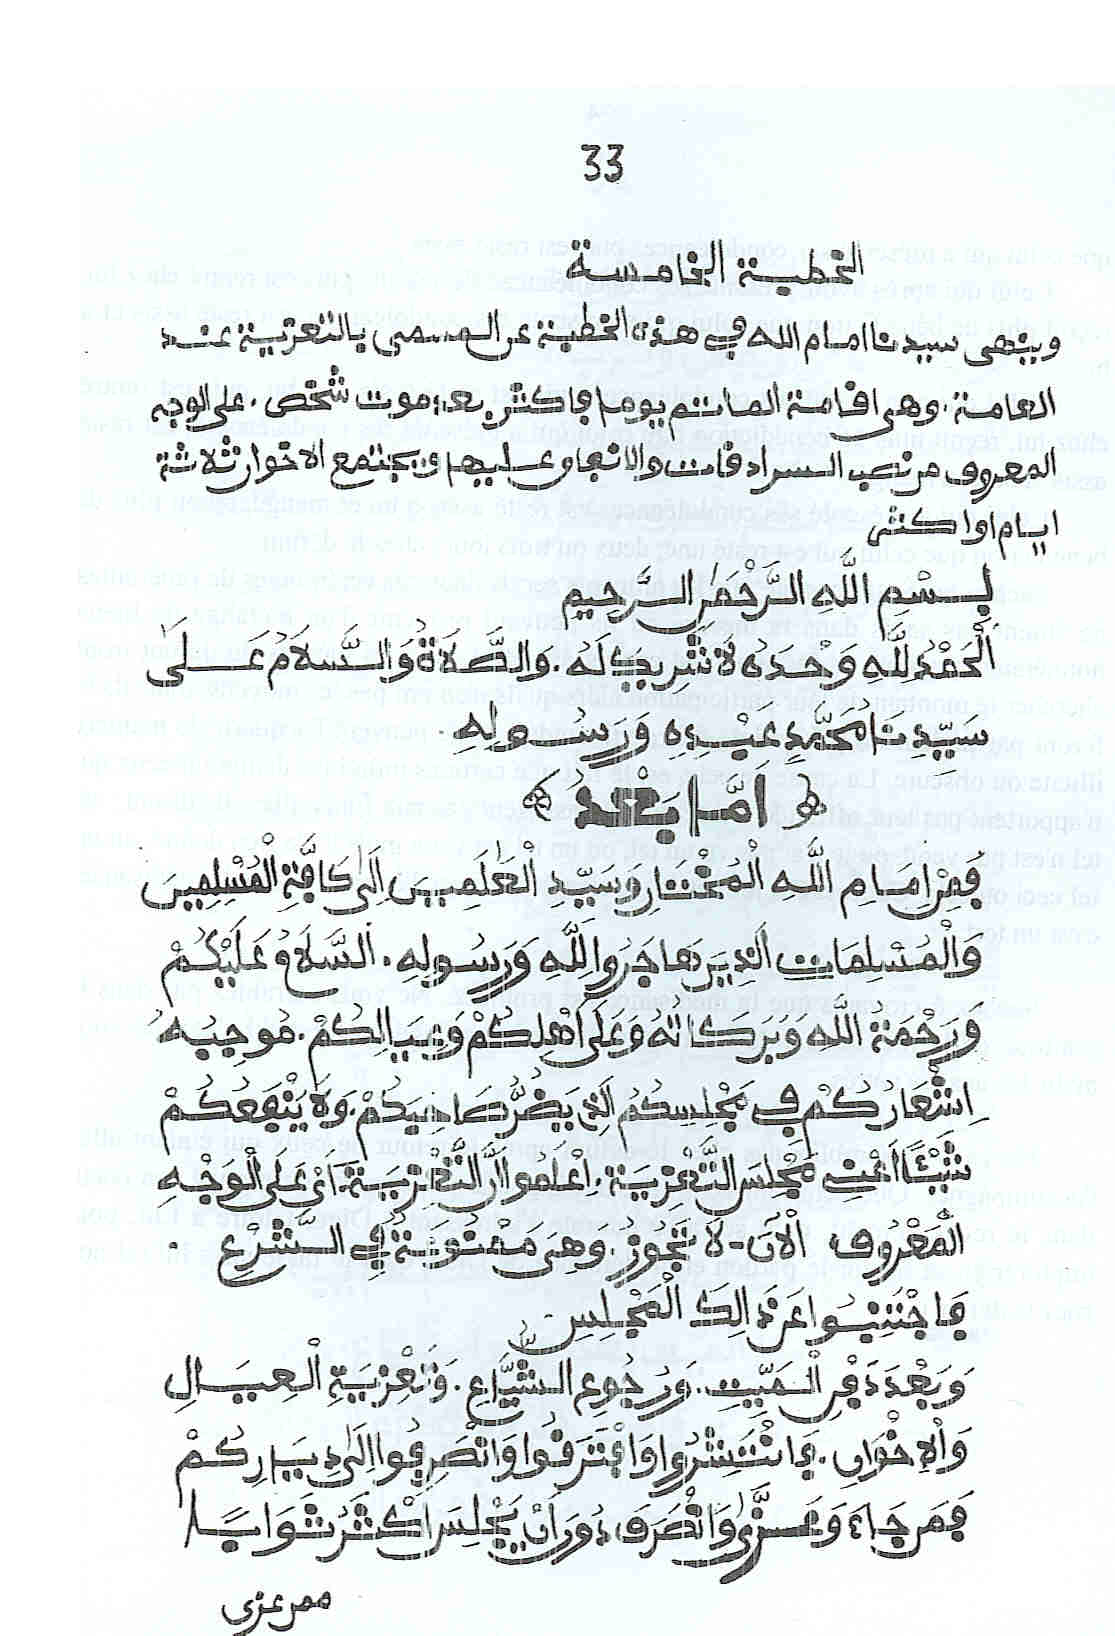 33
الخطبة الخامسة
وينهى سيدنا امام الله في هذه الخطبة عن المسمى بالتعزية عند
العامة. وهي اقامة الماتم يوما فاكثر بعد موت شخص. على الوجه
المعروف من نصب السرادقات والانفاق عليها ويجتمع الاخوان ثلاثة
ايام او اكثر
بِسْمِ اللَّهِ الرَّحْمَنِ الرَّحِيمِ
اَلْحَمْدُ لِلَّهِ وَحْدَهُ لَا شَرِيكَ لَهُ. وَالصَّلَاةُ وَالسَّلَامُ عَلَى
سَيِّدِنَا مُحَمَّدٍ عَبْدِهِ وَرَسُولِهِ.
﴿ اَمَّا بَعْدُ ﴾
فَمِنْ اِمَامِ اللَّهِ الْمُخْتَارِ وسَيِّدِ الْعَالَمِينَ اِلَى كَافَّةِ الْمُسْلِمِينَ
وَالْمُسْلِمَاتِ الَّذِينَ هَاجَرُوا لِلَّهِ وَرَسُولِهِ. اَلسَّلَامُ عَلَيْكُمْ
وَرَحْمَةُ اللَّهِ وبَرَكَاتُهُ وَعَلَى اَهْلِكُمْ وَعِيَالِكُمْ. مُوجِبُهُ
اِشْعَارُكُمْ فِي مَجْلِسِكُمُ الَّذِي يَضُرُّ صَاحِبَكُمْ. وَلَا يَنْفَعُكُمْ
شَيْئًا اَعْنِي مَجْلِسَ التَّعْزِيَةِ. اِعْلَمُوا اَنَّ التَّعْزِيَةَ. اَيْ عَلَى الْوَجْهِ
الْمَعْرُوفِ اَلْاَنَ - لَا تَجُوزُ. وَهِيَ مَمْنُوعَةٌ فِي الشَّرْعِ.
فَاجْتَنِبُوا عَنْ ذَالِكَ الْمَجْلِسِ
وَبَعْدَ دَفْنِ الْمَيِّتِ. وَرُجُوعِ الْمُشَيِّعِ. وَتَعْزِيَةِ الْعِيَالِ
وَالاِخْوَانِ. فَانْتَشِرُوا وَافْتَرِقُوا وَانْصَرِفُوا اِلَى دِيَارِكُمْ
فَمَنْ جَاءَ وَعَزَّى وَانْصَرَفَ دُونَ اَنْ يَجْلِسَ اَكْثَرُ ثَوَابًا
ممن عزى